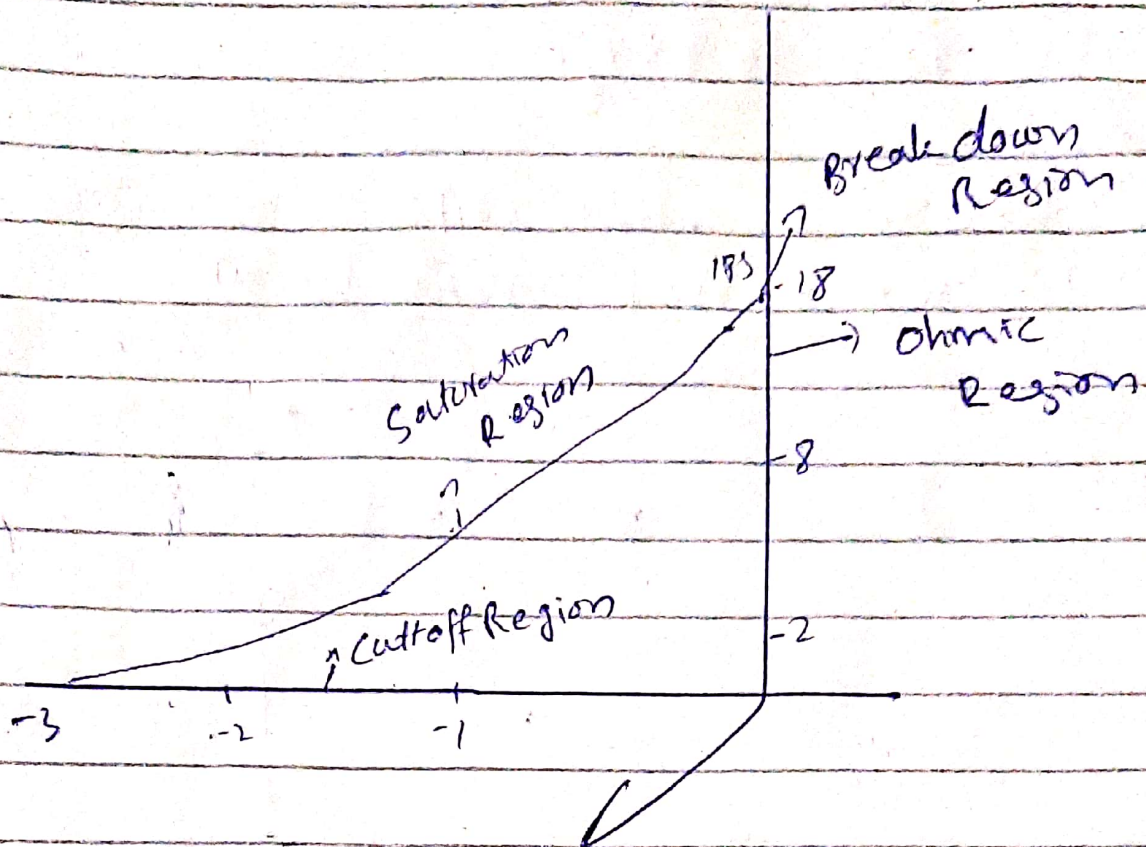 Breakdown
Region
IDS
-18
Ohmic
Region
Saturation
Region
-8
Cuttoff Region
-2
-3
-2
-1